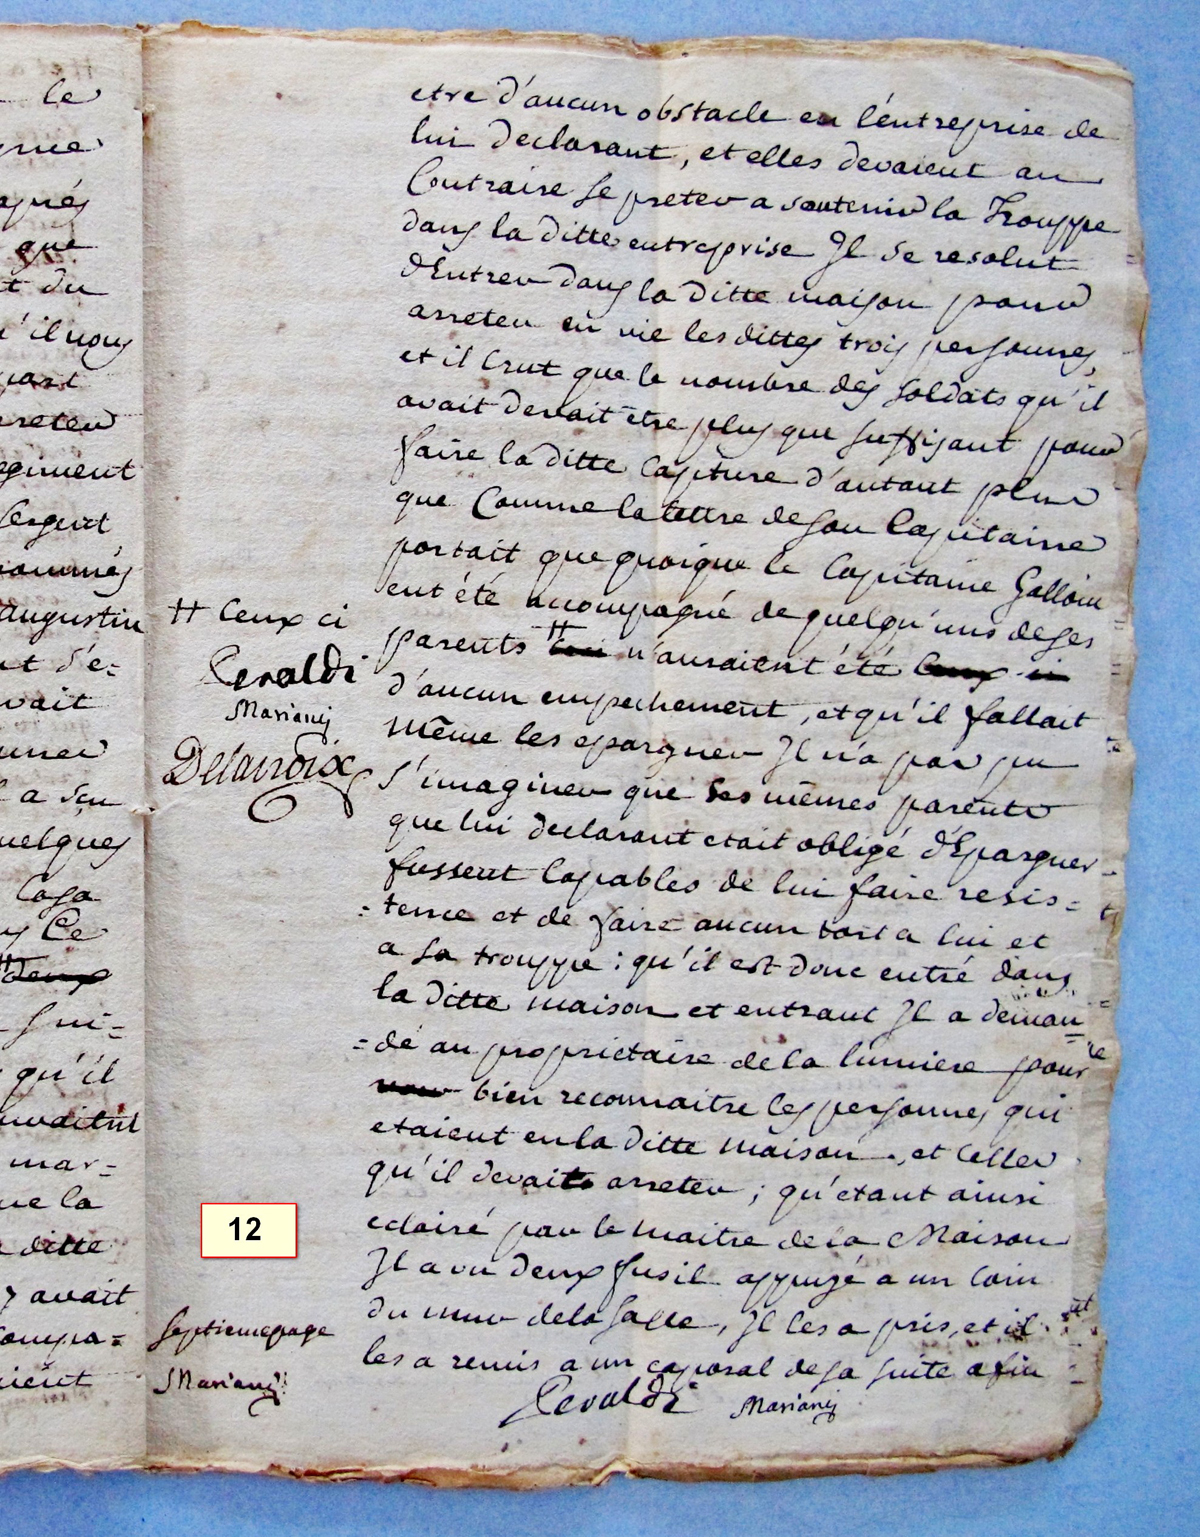 le
après
que
t du
qu'il nous
part
arreter
regiment
Sergent
nommés
augustin
nt d'e=
avait
a sçu
quelques
Casa
Ce
deux
Sui=
qu'il
mar=
que la
ditte
y avait
compa=
etre d'aucun obstacle en l'entreprise de
lui declarant, et elles devaient au
Contraire se preter a soutenir la trouppe
dans la ditte entreprise Il se resolut
d'Entrer dans la ditte maison pour
arreter en vie les dittes trois personnes,
et il Crut que le nombre des soldats qu'il
avait devait etre plus que suffisant pour
faire la ditte Capture d'autant plus
que Comme la lettre de son Capitaine
portait que quoique le Capitaine Galloni
eut été accompagné de quelqu'uns de ses
parents ++ n'auraient été Ceux ci
d'aucun empechement, et qu'il fallait
même les epargner Il n'a pas pu
s'imaginer que Ses mêmes parents
que lui declarant etait obligé d'Eparguer
fussent Capables de lui faire resis=
=tence et de faire aucun tort a lui et
a sa trouppe : qu'il est donc entré dans
la ditte maison et entrant Il a deman
=dé au proprietaire de la lumiere pour
bien reconnaitre les personnes qui
etaient en la ditte maison, et Celles
qu'il devait arreter ; qu'etant ainsi
eclairé par le maitre de la Maison
Il a vu deux fusil appuyé a un Coin
du mur de la Salle, Il les a pris, et il
les a remis a un caporal de sa suite afin
Geraldi Marianj
++ Ceux ci
Geraldi
Marianj
Delacroix
12
Septieme page
Marianj